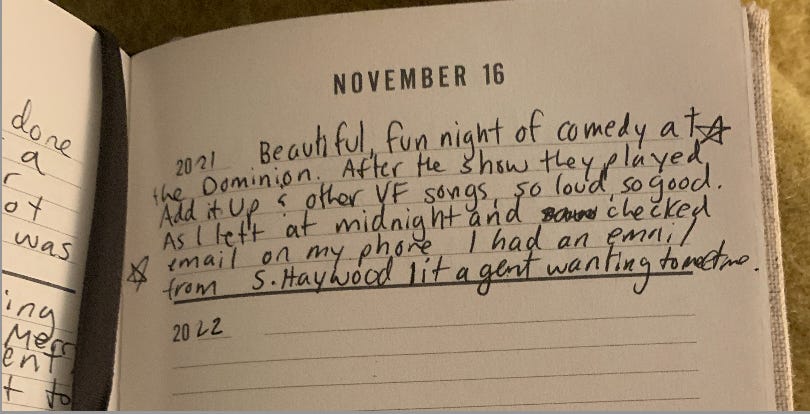 done
a
r
ot
was
ing
Mer
ent
t to
NOVEMBER 16
2021 Beautiful, fun night of comedy at
the Dominion. After the show they played
Add it Up & other VF songs, so loud, so good.
As I left at midnight and checked
email on my phone I had an email
from S. Haywood lit agent wanting to meet me.
2022